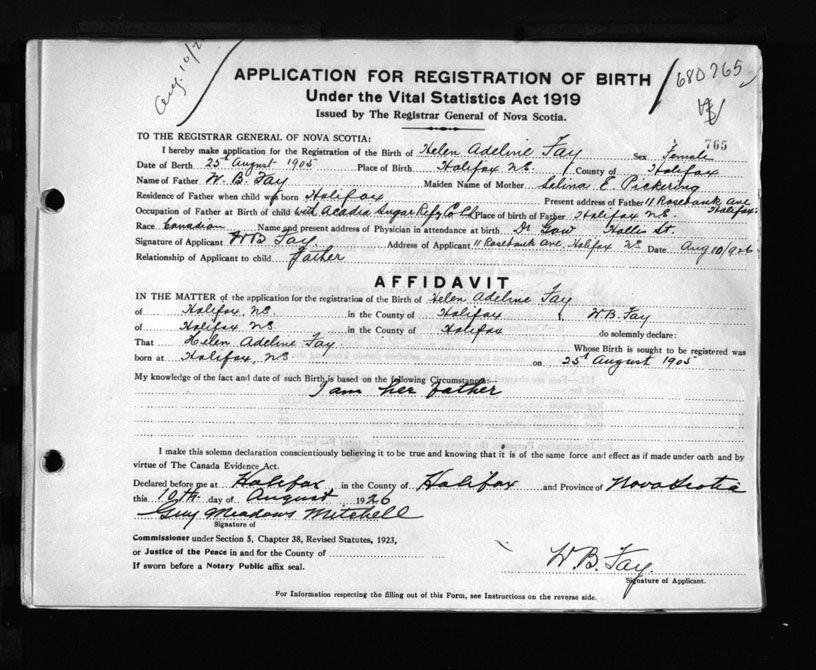 Aug. 10/2
APPLICATION FOR REGISTRATION OF BIRTH
680765
Under the Vital Statistics Act 1919
Issued by The Registrar General of Nova Scotia.
765
TO THE REGISTRAR GENERAL OF NOVA SCOTIA:
I hereby make application for the Registration of the Birth of Helen Adeline Fay Sex Female
Date of Birth 25th August 1905 Place of Birth Halifax N.S. County of Halifax
Name of Father W. B. Fay Maiden Name of Mother Selina E. Pickering
Residence of Father when child was born Halifax Present address of Father 11 Rosebank Ave Halifax
Occupation of Father at Birth of child with Acadia Sugar Refg Co Ltd Place of birth of Father Halifax N.S.
Race Canadian Name and present address of Physician in attendance at birth Dr Gow Hollis St.
Signature of Applicant WB Fay. Address of Applicant 11 Rosebank Ave. Halifax N.S. Date Aug 10/926
Relationship of Applicant to child Father
AFFIDAVIT
IN THE MATTER of the application for the registration of the Birth of Helen Adeline Fay
of Halifax, N.S. in the County of Halifax I, W B. Fay
of Halifax N.S. in the County of Halifax do solemnly declare:
That Helen Adeline Fay Whose Birth is sought to be registered was
born at Halifax, N.S on 25th August 1905
My knowledge of the fact and date of such Birth is based on the following Circumstances:
I am her father
I make this solemn declaration conscientiously believing it to be true and knowing that it is of the same force and effect as if made under oath and by
virtue of The Canada Evidence Act.
Declared before me at Halifax in the County of Halifax and Province of Nova Scotia
this 12th day of August 1926
Guy Meadows Mitchell
Signature of
Commissioner under Section 5, Chapter 38, Revised Statutes, 1923,
or Justice of the Peace in and for the County of
W B. Fay.
If sworn before a Notary Public affix seal.
Signature of Applicant.
For Information respecting the filling out of this Form, see Instructions on the reverse side.